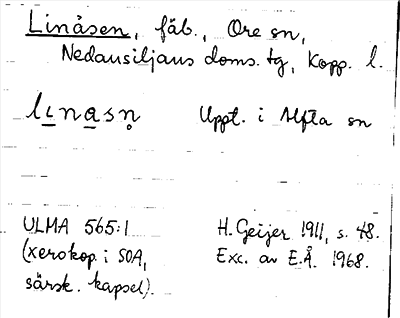 Linåsen, fäb., Ore sn,
Nedansiljans doms. tg, Kopp. l.
lɩnasn̥ Uppt. i Alfta sn
ULMA 565:1 H. Geijer 1911, s. 48.
(xerokop. i SOA, Exc. av E.Å. 1968.
särsk. kapsel).